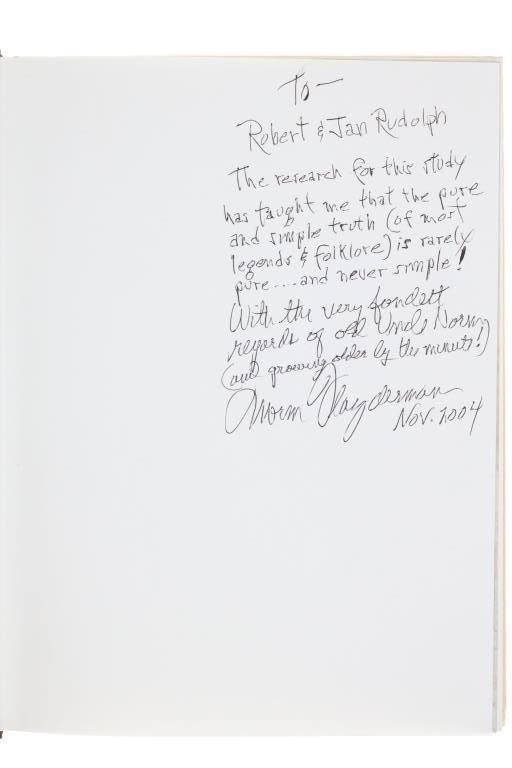 To —
Robert & Jan Rudolph
The research for this study
has taught me that the pure
and simple truth (of most
legends & folklore) is rarely
pure....and never simple!
With the very fondest
regards of old Uncle Norm
(and growing older by the minute!)
Norm Flayderman
Nov. 2004